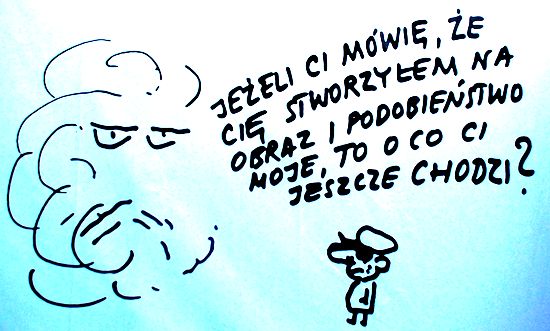 JEŻELI CI MÓWIĘ, ŻE
CIĘ STWORZYŁEM NA
OBRAZ I PODOBIEŃSTWO
MOJE, TO O CO CI
JESZCZE CHODZI?